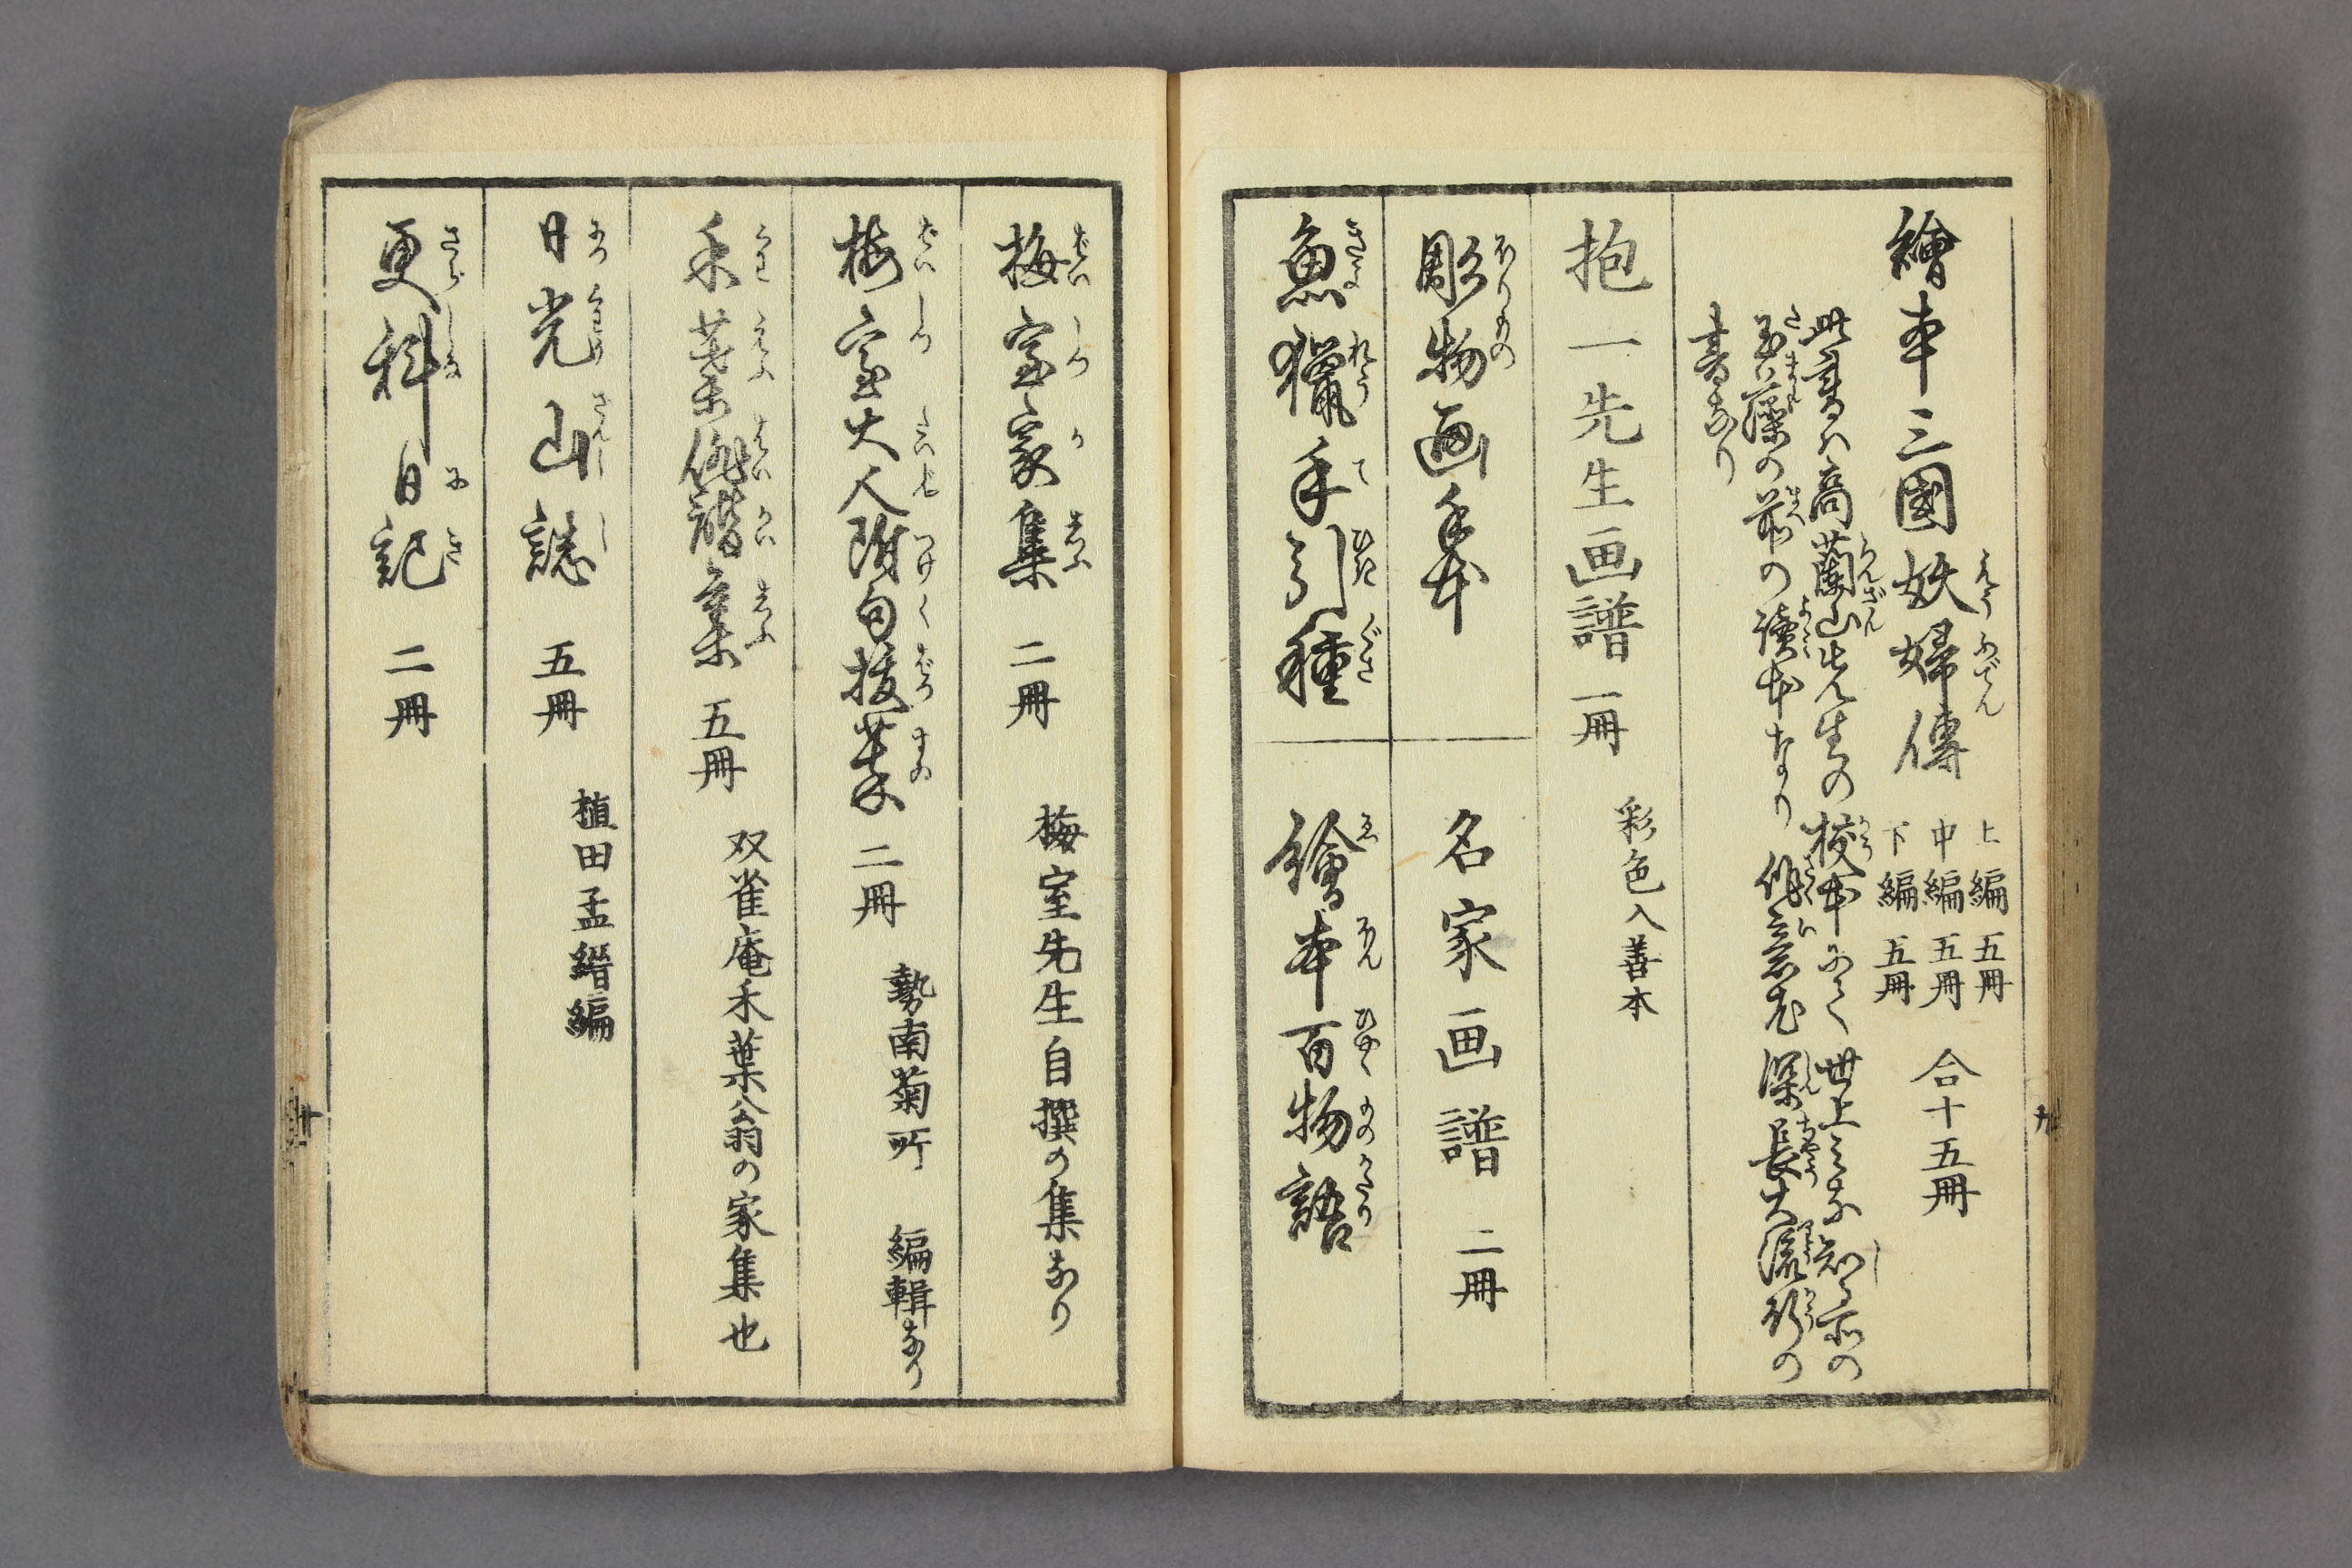 繪本三國妖婦傳
上編五冊
中編五冊
下編五冊
合十五冊
此書ハ高蘭山先生の校本にて世上ミな知る所の
玉藻の前の讀本なり作意尤深長大流行の
書なり
抱一先生画譜 一冊 彩色入善本
彫物画手本
名家画譜 二冊
魚獵手引種
繪本百物語
梅室家集 二冊 梅室先生自撰の集なり
梅室大人附句抜萃 二冊 勢南菊所 編輯なり
禾葉俳諧集 五冊 双雀庵禾葉翁の家集也
日光山誌 五冊 植田孟縉編
更科日記 二冊